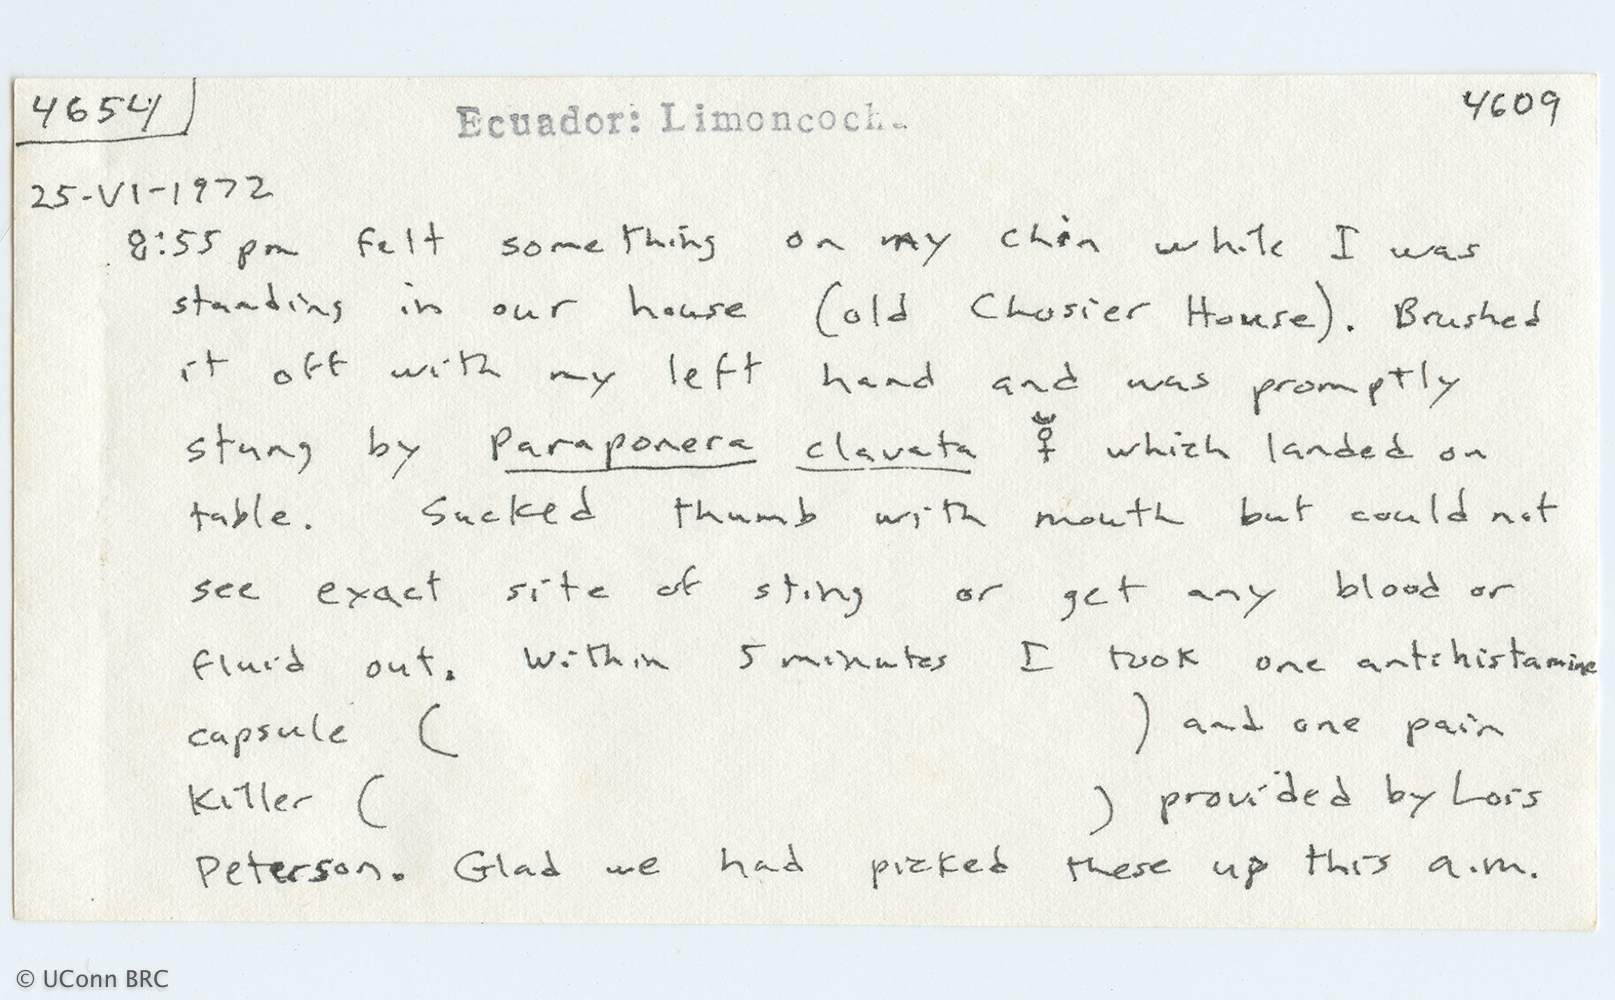 4654 Ecuador: Limoncoch 4609
25-VI-1972
8:55 pm felt something on my chin while I was
standing in our house (old Chosier House). Brushed
it off with my left hand and was promptly
stung by Paraponera clavata which landed on
table. Sucked thumb with mouth but could not
see exact site of sting or get any blood or
fluid out. Within 5 minutes I took one antihistamine
capsule ( ) and one pain
Killer ( ) provided by Lois
Peterson. Glad we had picked these up this a.m.
© UConn BRC